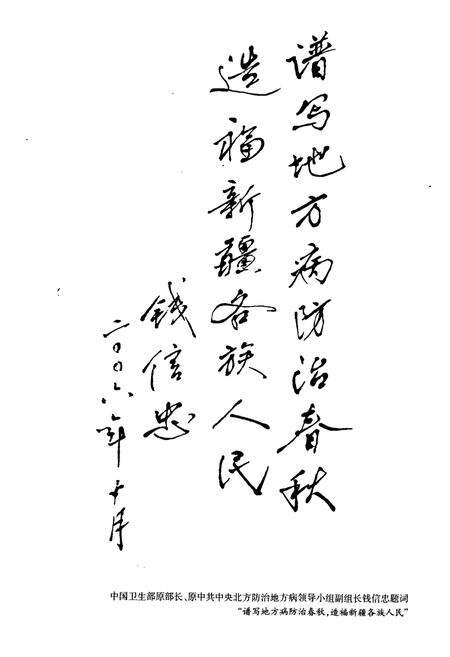 谱写地方病防治春秋
造福新疆各族人民
钱信忠
二〇〇六年十月
中国卫生部原部长、原中共中央北方防治地方病领导小组副组长钱信忠题词
“谱写地方病防治春秋,造福新疆各族人民”